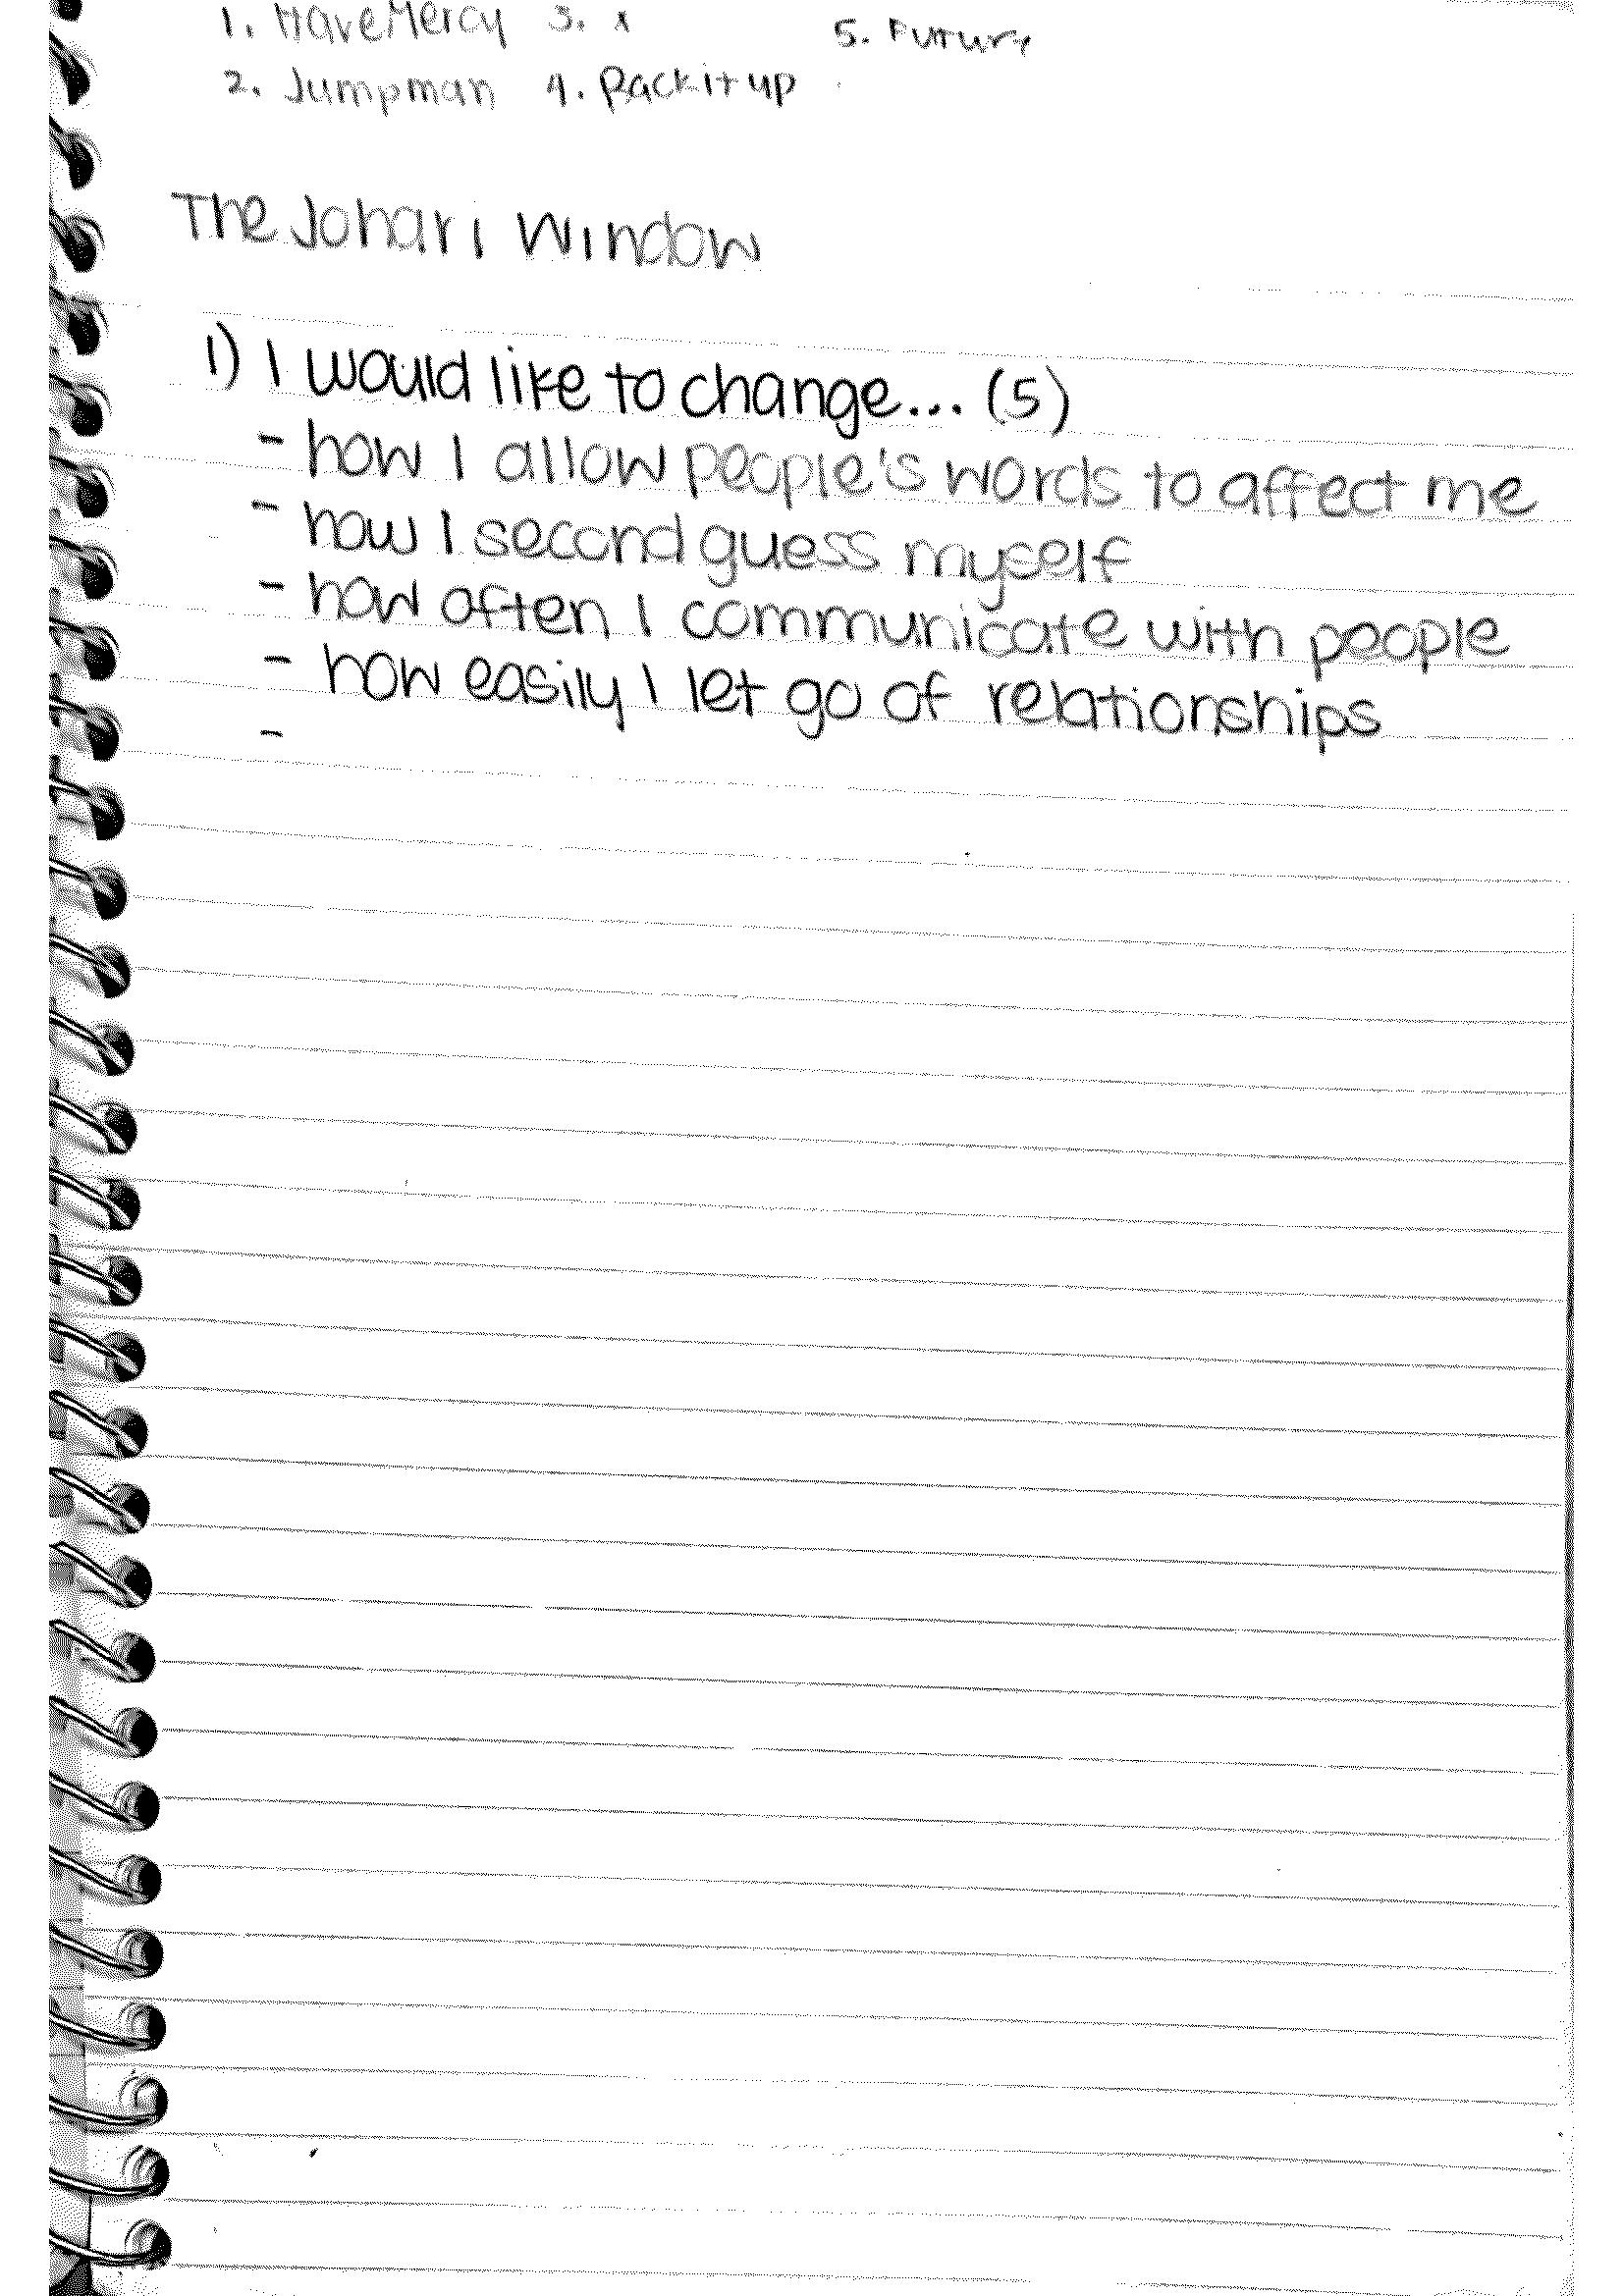 1. HaveMercy 3. x 5. Future
2. Jumpman 4. Rackitup
The Johari Window
1) I would like to change... (5)
- how I allow people's words to affect me
- how I second guess myself
- how often I communicate with people
- how easily I let go of relationships
-